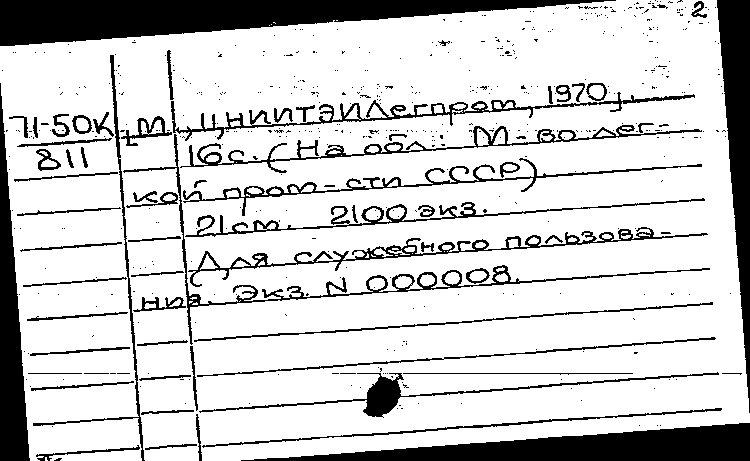 2
71-50К
811
[М., ЦНИИТЭИлегпром, 1970].
16с. (На обл.: М-во лег-
кой пром-сти СССР).
21см. 2100 экз.
Для служебного пользова-
ния. Экз. N 000008.